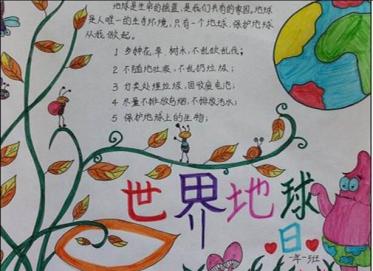 地球是生命的摇篮,是我们共有的家园。地球
是人唯一的生存环境,只有一个地球,保护地球
从我做起。
1 多种花、草、树木,不乱砍乱伐;
2 不随地吐痰,不乱扔垃圾;
3 分类处理垃圾,回收废电池;
4 尽量不排放乌烟,不排放污水;
5 保护地球上的生物;
世界地球
日
一年一班